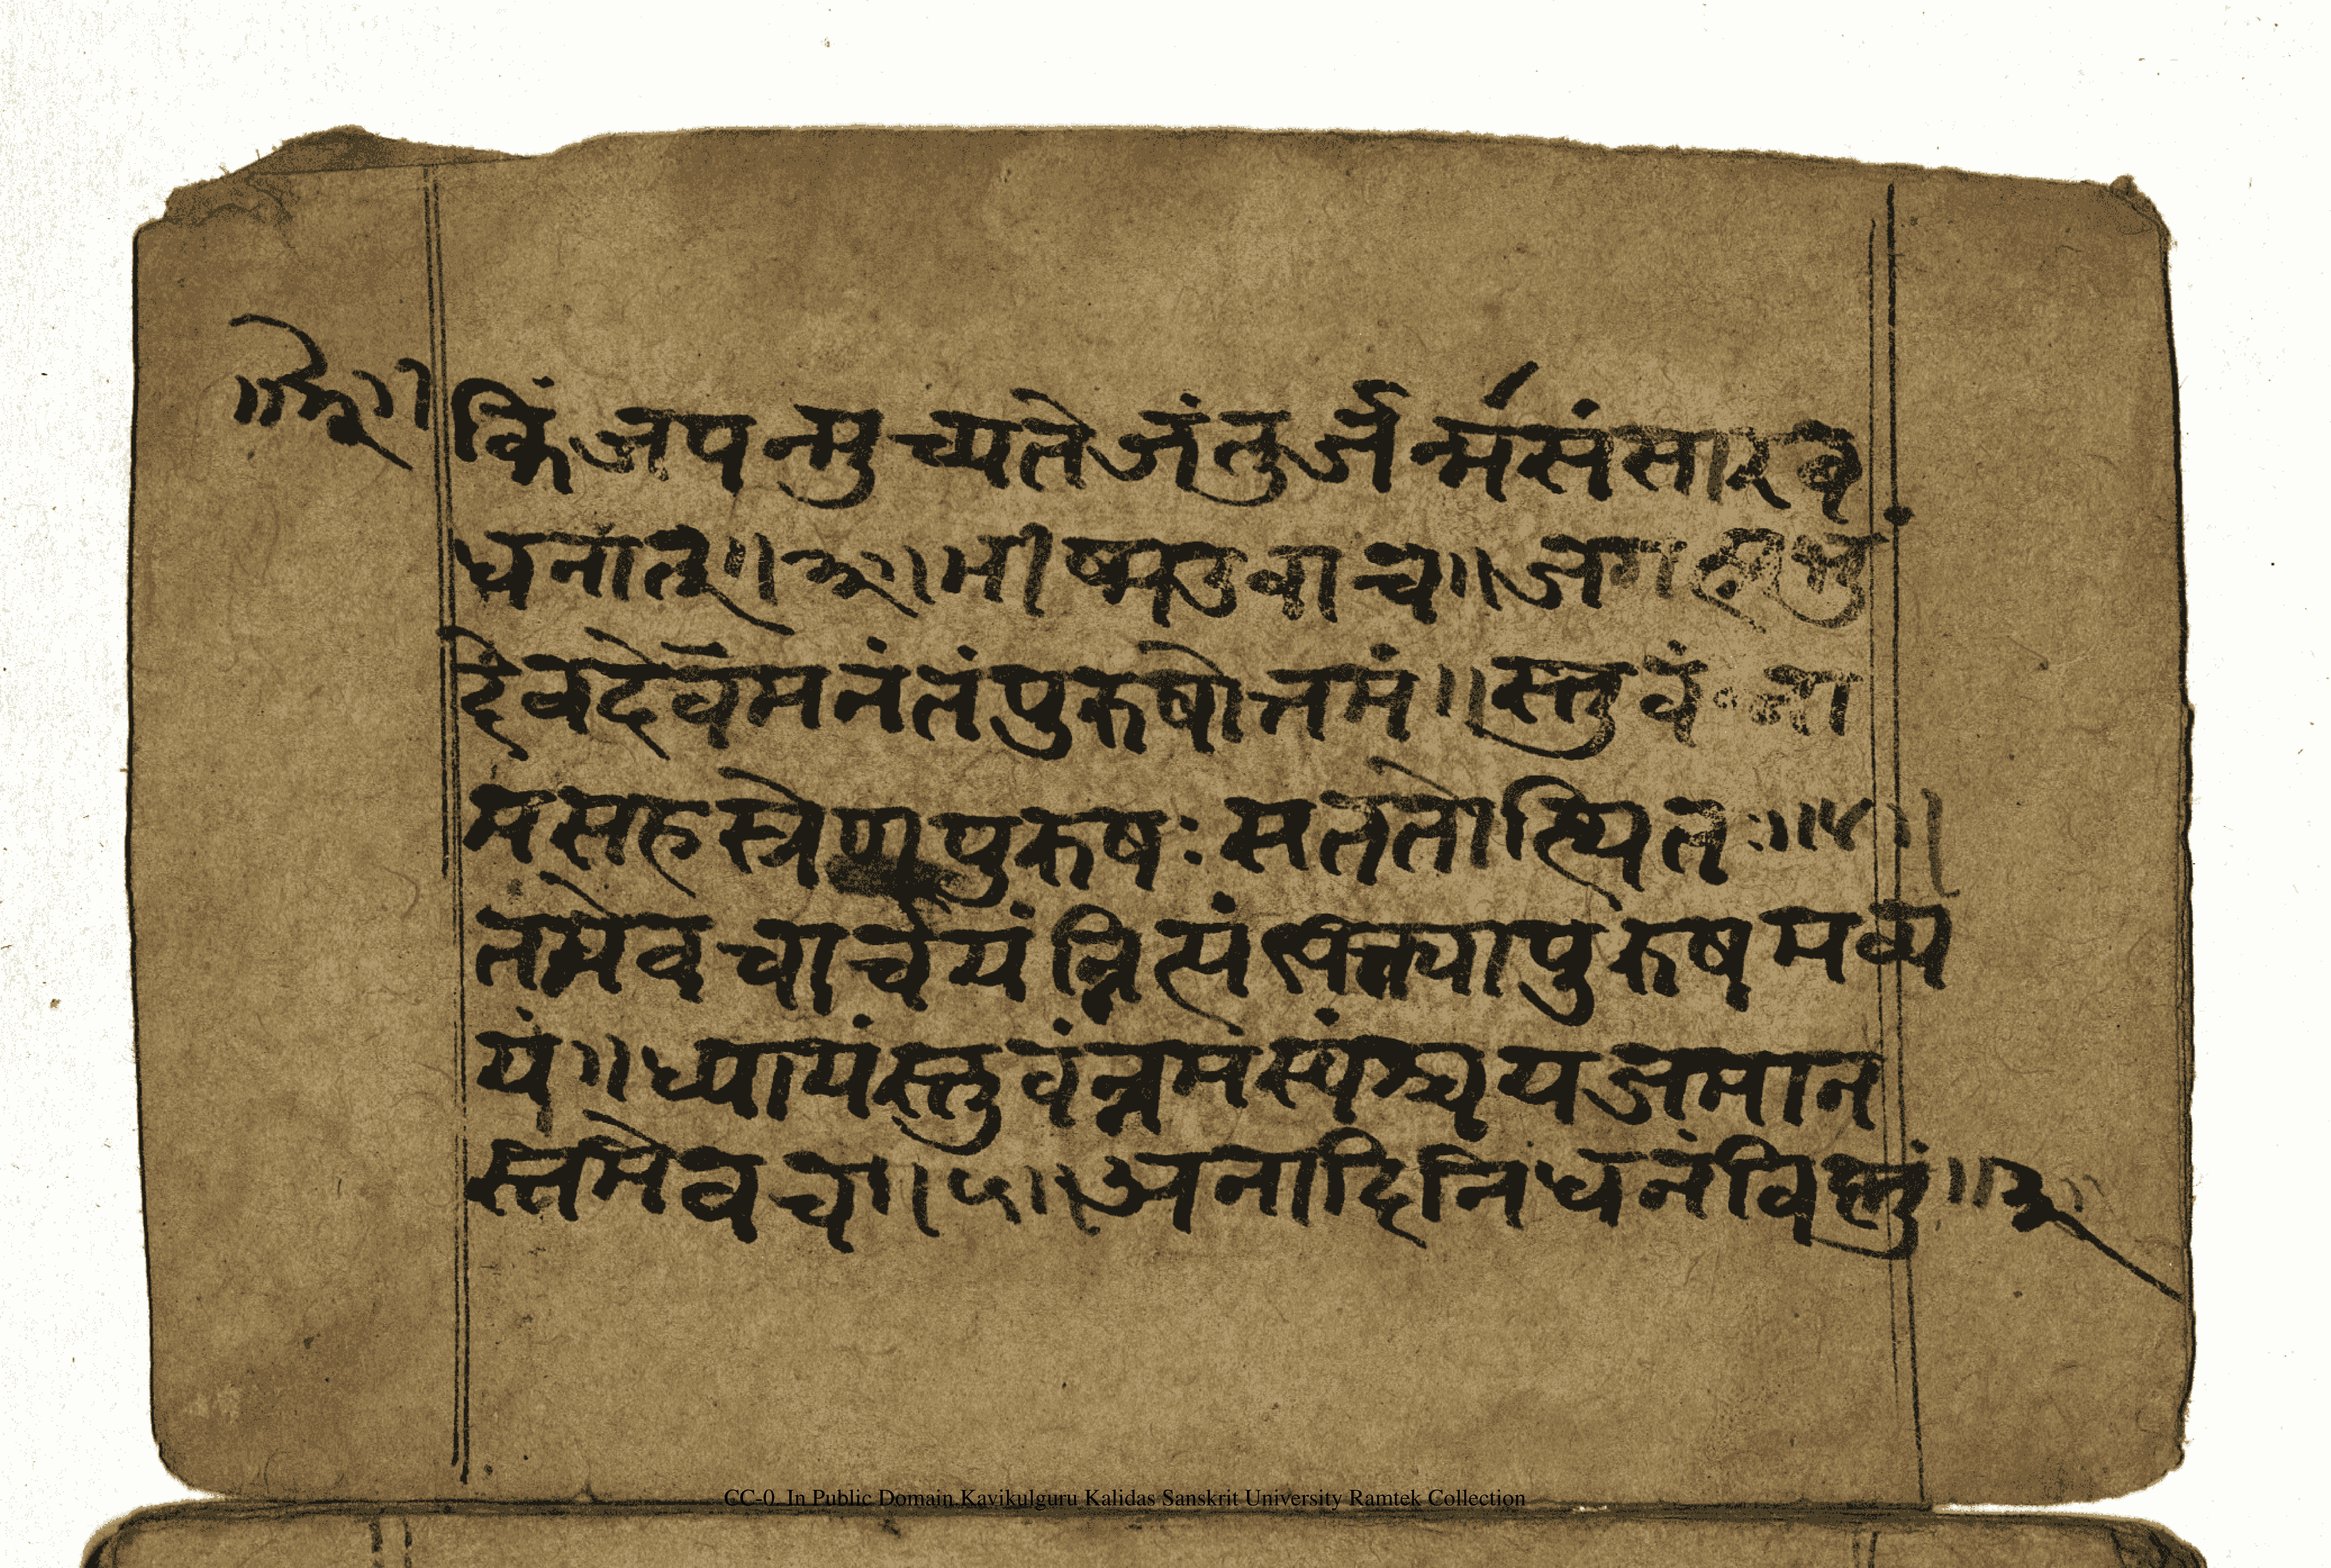 किंजपन्मुच्यतेजंतुर्जर्न्मसंसारबं
धनात्॥३॥भीष्मउवाच॥जग
देवदेवंमनंतंपुरुषोत्तमं॥स्तुवं ना
मसहस्त्रेणपुरुषःसततोत्थितः॥४॥
तमेवचार्चयंन्नित्यंभक्त्यापुरुषमव्य
यं॥ध्यायंस्तुवंन्नमंस्यंश्चयजमान
स्तमेवच॥५॥अनादिनिधनंविष्नुं॥
CC-0. In Public Domain.Kavikulguru Kalidas Sanskrit University Ramtek Collection